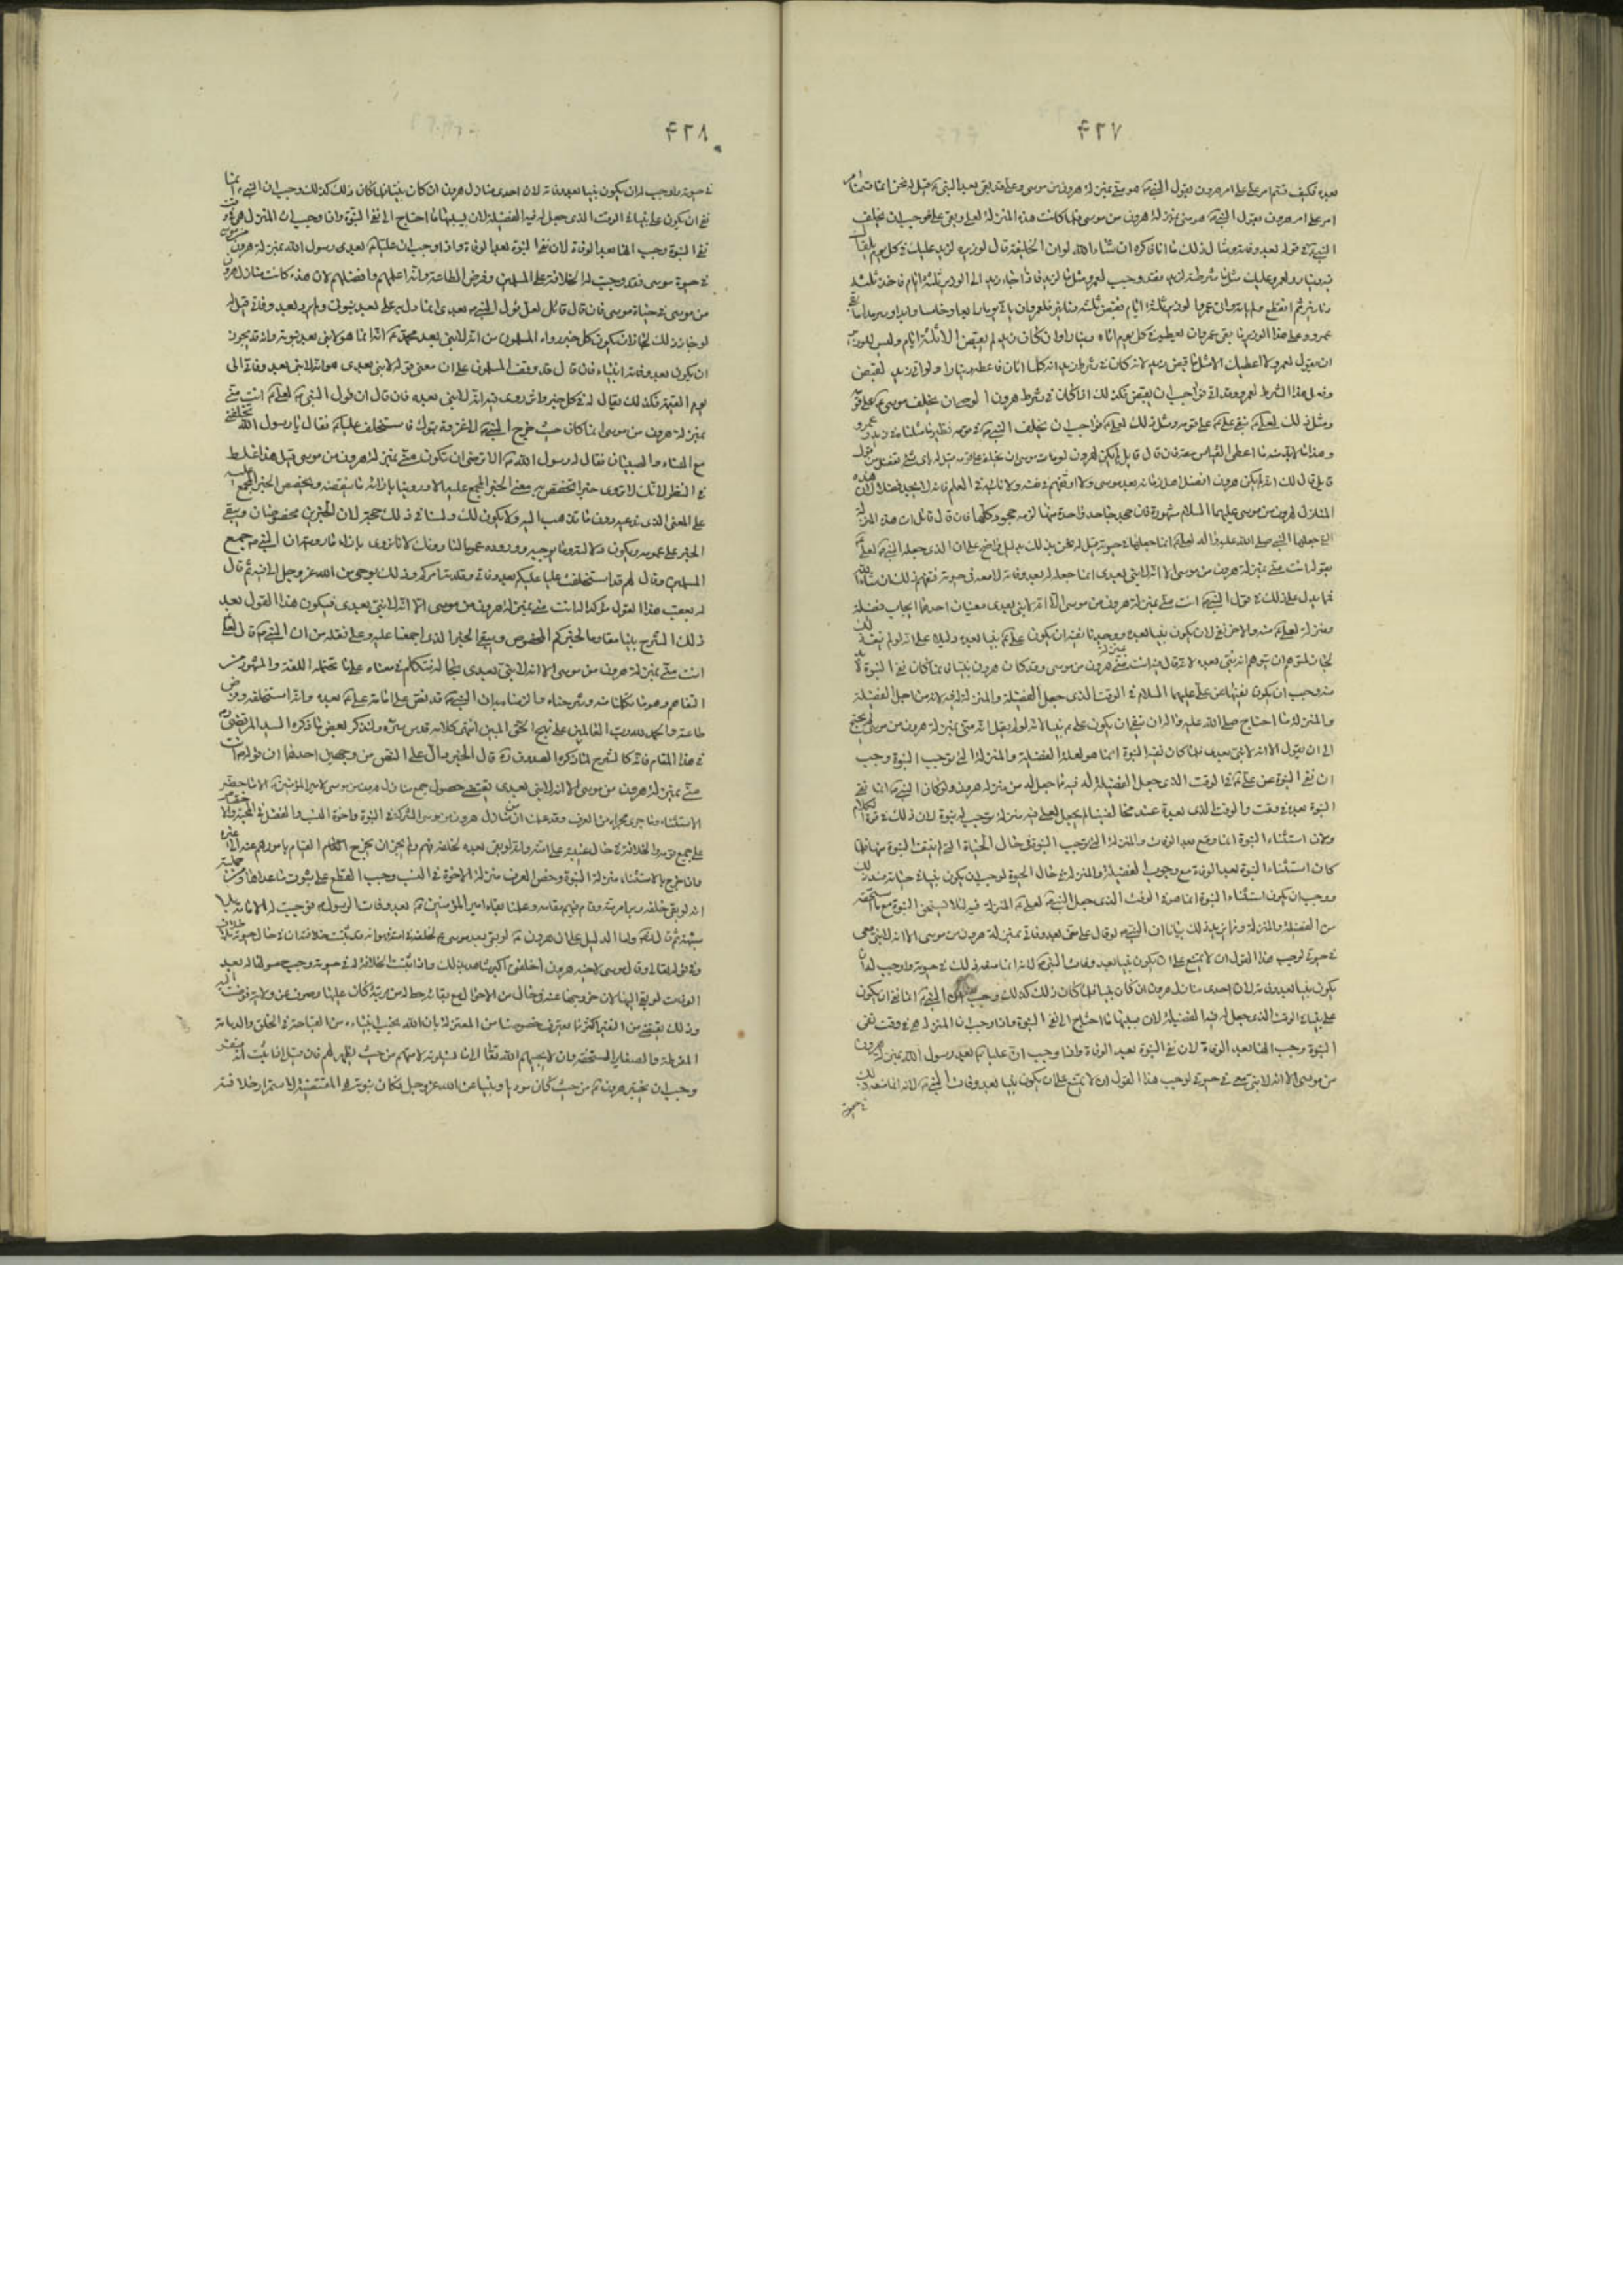 ۴۲۷
بعده فكيف فتم امر علي على امر هرون بقول النبي هو مني بمنزلة هرون من موسى وعلي قد بقي بعد النبي قيل له نحن انما قسنا
امر علي امر هرون بقول النبي هو مني بمنزلة هرون من موسى فلما كانت هذه المنزلة لعلي وبقي علي فوجب ان يخلف
النبي في قومه بعد وفاته ومثال ذلك ما انا ذاكره ان شاء الله لو ان الخليفة قال لوزيره لزيد عليك في كل يوم يلقاك
فيه دينار ولعمرو عليك مثل ما شرطته لزيد فقد وجب لعمرو مثل ما لزيد فاذا جاء زيد الى الوزير ثلثة ايام فاخذ ثلثة
دنانير ثم انقطع ولم ياته واتى عمرو الوزير ثلثة ايام فقبض ثلثة دنانير فلعمرو ان ياتي يوما رابعا وخامسا وابدا وسرمدا ما بقي
عمرو وعلى هذا الوزير ما بقي عمرو ان يعطيه في كل يوم اتاه دينارا وان كان زيد لم يقبض الا ثلثة ايام وليس للوزير
ان يقول لعمرو لا اعطيك الا مثل ما قبض زيد لانه كان في شرط زيد انه كلما اتاك فاعطه دينارا ولو اتى زيد لقبض
وفعل هذا الشرط لعمرو وقد اتى فواجب ان يقبض فكذلك اذا كان في شرط هرون الوصي ان يخلف موسى على قومه
ومثل ذلك لعلي فبقي علي على قومه ومثل ذلك لعلي فواجب ان يخلف النبي في قومه نظير ما مثلناه في زيد وعمرو
وهذا ما لا بد منه ما اعطى القياس حقه فان قال قائل لم يكن لهرون لو مات موسى ان يخلفه على قومه قيل له باي شيء ينفصل من قول
قائل قال لك انه لم يكن هرون افضل اهل زمانه بعد موسى ولا اوثقهم في نفسه ولا نائبه في العلم فانه لا يجد فصلا لان هذه
المنازل لهرون من موسى عليهما السلام مشهورة فان جحد جاحد واحدة منها لزمه جحود كلها فان قال قائل ان هذه المنزلة
التي جعلها النبي صلى الله عليه واله لعلي انما جعلها في حيوته قيل له نحن ندلك بدليل واضح على ان الذي جعله النبي لعلي
بقوله انت مني بمنزلة هرون من موسى الا انه لا نبي بعدي انما جعله له بعد وفاته لا معه في حيوته فتفهم ذلك ان شاء الله
فمما يدل على ذلك في قول النبي انت مني بمنزلة هرون من موسى الا انه لا نبي بعدي معنيان احدهما ايجاب فضيلة
ومنزلة لعلي منه والاخر نفي لان يكون نبيا بعده ووجدنا نفيه ان يكون علي نبيا بعده دليلا على انه لو لم ينف ذلك
لجاز لمتوهم ان يتوهم انه نبي بعده لانه قال فيه انت مني بمنزلة هرون من موسى وقد كان هرون نبيا فلما كان نفي النبوة لا بد
منه وجب ان يكون نفيها عن علي عليهما السلام في الوقت الذي جعل الفضيلة والمنزلة له فيه لانه من اجل الفضيلة
والمنزلة ما احتاج صلى الله عليه واله ان ينفي ان يكون علي نبيا لانه لو لم يقل انه مني بمنزلة هرون من موسى لم يحتج
الى ان يقول الا انه لا نبي بعدي فلما كان نفيه النبوة انما هو لعلة الفضيلة والمنزلة التي توجب النبوة وجب
ان نفي النبوة عن علي في الوقت الذي جعل الفضيلة له فيه مما جعل له من منزلة هرون ولو كان النبي انما نفى
النبوة بعده في وقت والوقت الذي بعده عند مخالفينا لم يجعل لعلي فيه منزلة توجب له نبوة لان ذلك في قوة الكلام
ولان استثناء النبوة انما وقع بعد الوفاة والمنزلة التي توجب النبوة في حال الحياة التي لم ينتف النبوة منها فلو
كان استثناء النبوة بعد الوفاة مع وجوب الفضيلة والمنزلة في حال الحيوة لوجب ان يكون نبيا في حياته ففسد ذلك
ووجب ان يكون استثناء النبوة انما هو في الوقت الذي جعل النبي لعلي المنزلة فيه لئلا يستحق النبوة مع ما استحقه
من الفضيلة والمنزلة ومما يزيد ذلك بيانا ان النبي لو قال علي مني بعد وفاتي بمنزلة هرون من موسى الا انه لا نبي معي
في حيوتي لوجب هذا القول ان لا يمتنع علي ان يكون نبيا بعد وفاة النبي لانه انما منعه ذلك في حيوته واوجب له ان
يكون نبيا بعد وفاته لان احدى منازل هرون ان كان نبيا فلما كان ذلك كذلك وجب ان النبي انما نفى ان يكون
علي نبيا في الوقت الذي جعل له فيه الفضيلة لان بسببها ما احتاج الى نفي النبوة واذا وجب ان المنزلة هي في وقت نفي
النبوة وجب انها بعد الوفاة لان نفي النبوة بعد الوفاة واذا وجب ان عليا بعد رسول الله بمنزلة هرون
من موسى الا انه لا نبي معي في حيوتي لوجب هذا القول ان لا يمتنع علي ان يكون نبيا بعد وفاة النبي لانه انما منعه ذلك
في حيوته
۴۲۸
في حيوته واوجب له ان يكون نبيا بعد وفاته لان احدى منازل هرون ان كان نبيا فلما كان ذلك كذلك وجب ان النبي انما
نفى ان يكون علي نبيا في الوقت الذي جعل له فيه الفضيلة لان بسببها ما احتاج الى نفي النبوة واذا وجب ان المنزلة هي في وقت
نفي النبوة وجب انها بعد الوفاة لان نفي النبوة بعد الوفاة واذا وجب ان عليا بعد رسول الله بمنزلة هرون من موسى
في حيوة موسى فقد وجبت له الخلافة على المسلمين وفرض الطاعة وانه اعلمهم وافضلهم لان هذه كانت منازل هرون
من موسى في حياة موسى فان قال قائل لعل قول النبي بعدي انما دل به على بعد نبوتي ولم يرد بعد وفاتي قيل له
لو جاز ذلك لجاز ان يكون كل خبر رواه المسلمون من انه لا نبي بعد محمد انه انما هو لا نبي بعد نبوته وانه قد يجوز
ان يكون بعد وفاته انبياء فان قال قد وفق المسلمون على ان معنى قوله لا نبي بعدي هو انه لا نبي بعد وفاتي الى
يوم القيمة فكذلك يقال له في كل خبر واثر روي فيه انه لا نبي بعده فان قال ان قول النبي لعلي انت مني
بمنزلة هرون من موسى انما كان حيث خرج النبي الى غزوة تبوك فاستخلف عليا فقال يا رسول الله تخلفني
مع النساء والصبيان فقال له رسول الله الا ترضى ان تكون مني بمنزلة هرون من موسى قيل هذا غلط
في النظر لانك لا تروي خبرا تخصص به معنى الخبر المجمع عليه الا وروينا بازائه ما ينقضه ويخصص الخبر المجمع عليه
على المعنى الذي ندعيه دون ما تذهب اليه ولا يكون لك ولنا في ذلك حجة لان الخبرين مخصوصان ويبقى
الخبر على عمومه ويكون دلالته وما يوجبه وروده عموما لنا دونك لانا نروي بازاء ما رويته ان النبي جمع
المسلمين وقال لهم قد استخلفت عليا عليكم بعد وفاتي وقلدته امركم وذلك بوحي من الله عز وجل الي فيه ثم قال
له بعقب هذا القول مؤكدا له انت مني بمنزلة هرون من موسى الا انه لا نبي بعدي فيكون هذا القول بعد
ذلك الشرح بينا مقاوما لخبركم المخصوص ويبقى الخبر الذي اجمعنا عليه وعلى نقله من ان النبي قال لعلي
انت مني بمنزلة هرون من موسى الا انه لا نبي بعدي بحاله نتكلم في معناه على ما تحتمله اللغة والمشهور من
التفاهم وهو ما تكلمنا فيه وشرحناه والزمنا به ان النبي قد نص على امامة علي بعده وانه استخلفه وفرض
طاعته والحمد لله رب العالمين على نهج الحق المبين انتهى كلامه قدس سره ولنذكر بعض ما ذكره السيد المرتضى ره
في هذا المقام فانه كالشرح لما ذكره الصدوق ره قال الخبر دال على النص من وجهين احدهما ان قوله انت
مني بمنزلة هرون من موسى الا انه لا نبي بعدي يقتضي حصول جميع منازل هرون من موسى لامير المؤمنين الا ما خصه
الاستثناء وما جرى مجراه من العرف وقد علمنا ان من منازل هرون من موسى الشركة في النبوة واخوة النسب والفضل في المحبة والاختصاص
على جميع قومه والخلافة له في حال غيبته على امته وانه لو بقي بعده لخلفه فيهم ولم يجز ان يخرج القيام بامورهم عنه الى غيره
واذا خرج بالاستثناء منزلة النبوة وخص العرف منزلة الاخوة في النسب وجب القطع على ثبوت ما عداهما ومن جملته
انه لو بقي خلفه ودبر امر امته وقام فيهم مقامه وعلمنا بقاء امير المؤمنين بعد وفاة الرسول فوجبت له الامامة بلا
شبهة ثم قال ره واما الدليل على ان هرون لو بقي بعد موسى لخلفه في امته فهو انه قد ثبتت خلافته له في حال حيوته بلا خلاف
وفي قوله تعالى وقال موسى لاخيه هرون اخلفني اكبر شاهد بذلك واذا ثبتت الخلافة له في حيوته وجب حصولها له بعد
الوفاة لو بقي اليها لان خروجها عنه في حال من الاحوال مع بقائه حط له من رتبة كان عليها وصرف عن ولاية فوضت اليه
وذلك يقتضي من التنفير اكثر مما يعترف خصومنا من المعتزلة بان الله يجنب انبياءه من القباحة في الخلق والدمامة
المفرطة والصغائر المستخفة وان لا يجيبهم الله تعالى الى ما يسئلونه لامتهم من حيث لا يظهر لهم فان قيل اذا ثبت انه منفر
وجب ان يجتنبه هرون من حيث كان مؤديا ونبيا عن الله عز وجل فكان نبوته هي المقتضية لاستمرار خلافته